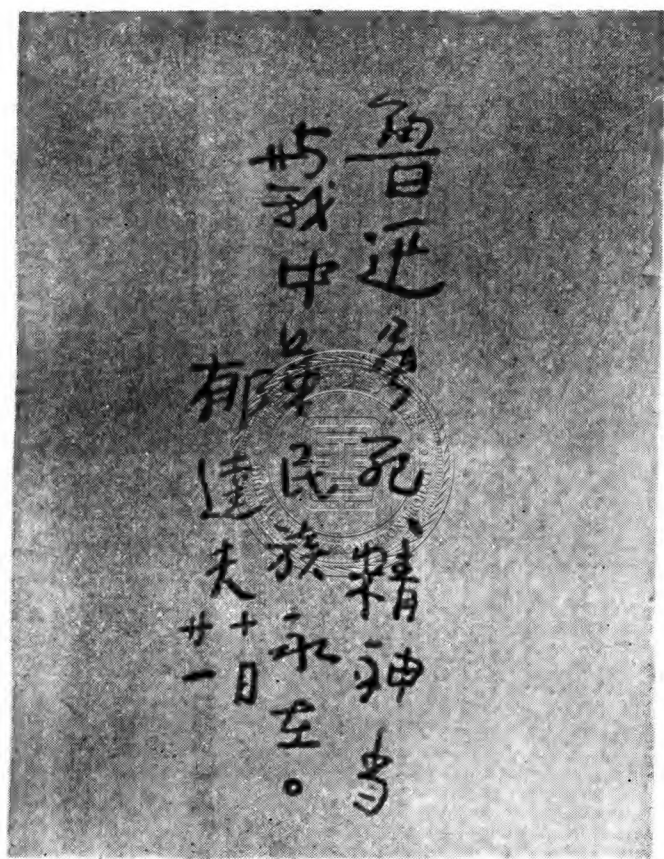 魯迅虽死、精神当
與我中華民族永在。
郁達夫
十月
廿一